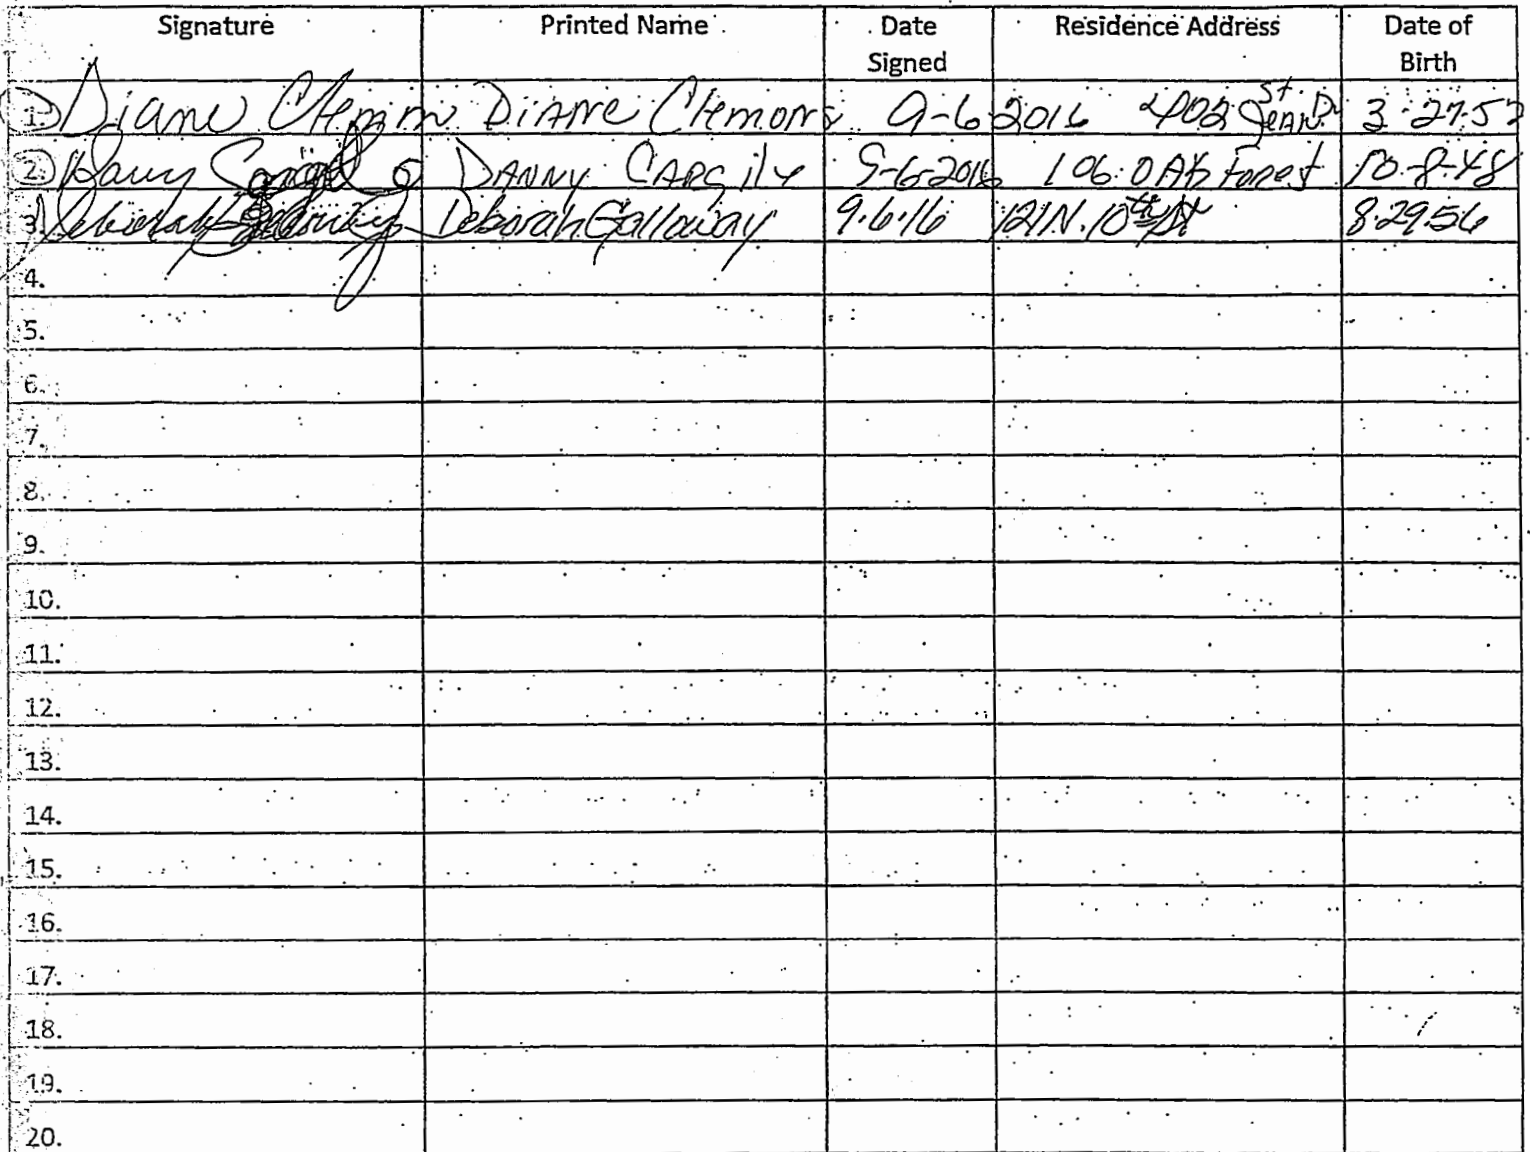 Signature Printed Name Date Signed Residence Address Date of Birth
1. Diane Clemon Diane Clemons 9-6-2016 402 St. Jean Dr 3-27-53
2. Danny DANNY CARgile 9-6-2016 106 OAk Forest 10-8-48
3. Deborah Galloway Deborah Galloway 9.6.16 121 N. 10th St 8.29.56
4.
5.
6.
7.
8.
9.
10.
11.
12.
13.
14.
15.
16.
17.
18.
19.
20.